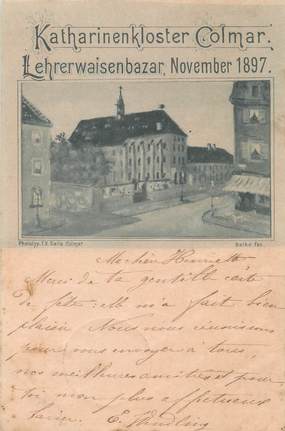 Katharinenkloster Colmar.
Lehrerwaisenbazar, November 1897.
Ma chère Henriette
Merci de ta gentille carte
de fête; elle m'a fait bien
plaisir. Nous nous réunissons
pour vous envoyer à tous,
nos meilleures amitiés et pour
toi mon plus affectueux
baiser.